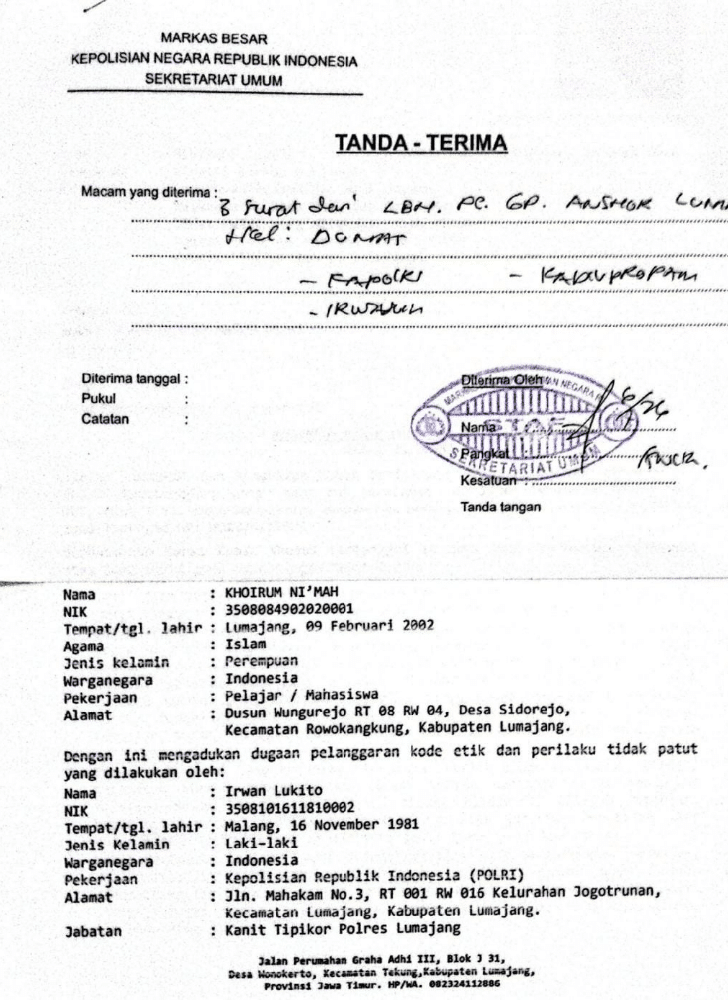 MARKAS BESAR
KEPOLISIAN NEGARA REPUBLIK INDONESIA
SEKRETARIAT UMUM
TANDA - TERIMA
Macam yang diterima :
3 surat dari LBH. PC. GP. ANSHOR LUMA
Hal: DUMAS
- KAPOLRI - KADIVPROPAM
- IRWASUM
Diterima tanggal :
Pukul :
Catatan :
Diterima Oleh
6/26
Nama
Pangkat :
Kesatuan :
SEKRETARIAT UMUM
Tanda tangan
Nama : KHOIRUM NI'MAH
NIK : 3508084902020001
Tempat/tgl. lahir : Lumajang, 09 Februari 2002
Agama : Islam
Jenis kelamin : Perempuan
Warganegara : Indonesia
Pekerjaan : Pelajar / Mahasiswa
Alamat : Dusun Wungurejo RT 08 RW 04, Desa Sidorejo,
Kecamatan Rowokangkung, Kabupaten Lumajang.
Dengan ini mengadukan dugaan pelanggaran kode etik dan perilaku tidak patut
yang dilakukan oleh:
Nama : Irwan Lukito
NIK : 3508101611810002
Tempat/tgl. lahir : Malang, 16 November 1981
Jenis Kelamin : Laki-laki
Warganegara : Indonesia
Pekerjaan : Kepolisian Republik Indonesia (POLRI)
Alamat : Jln. Mahakam No.3, RT 001 RW 016 Kelurahan Jogotrunan,
Kecamatan Lumajang, Kabupaten Lumajang.
Jabatan : Kanit Tipikor Polres Lumajang
Jalan Perumahan Graha Adhi III, Blok J 31,
Desa Wonokerto, Kecamatan Tekung,Kabupaten Lumajang,
Provinsi Jawa Timur. HP/WA. 082324112886